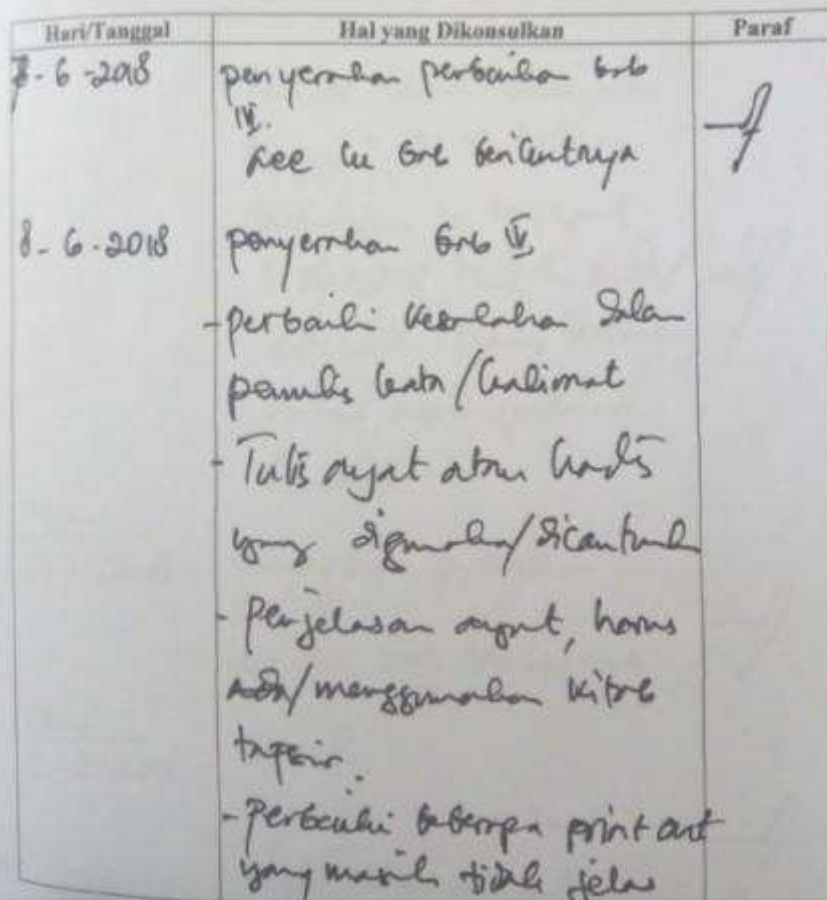 Hari/Tanggal Hal yang Dikonsulkan Paraf
7-6-2018 penyerahan perbaikan bab
IV.
Acc ke bab berikutnya
8-6-2018 penyerahan bab IV
- perbaiki kesalahan dalam
penulis kata/kalimat
- Tulis ayat atau hadis
yang digunakan/dicantumk
- Penjelasan ayat, harus
ada/menggunakan kitab
tafsir.
- Perbaiki beberapa print out
yang masih tidak jelas